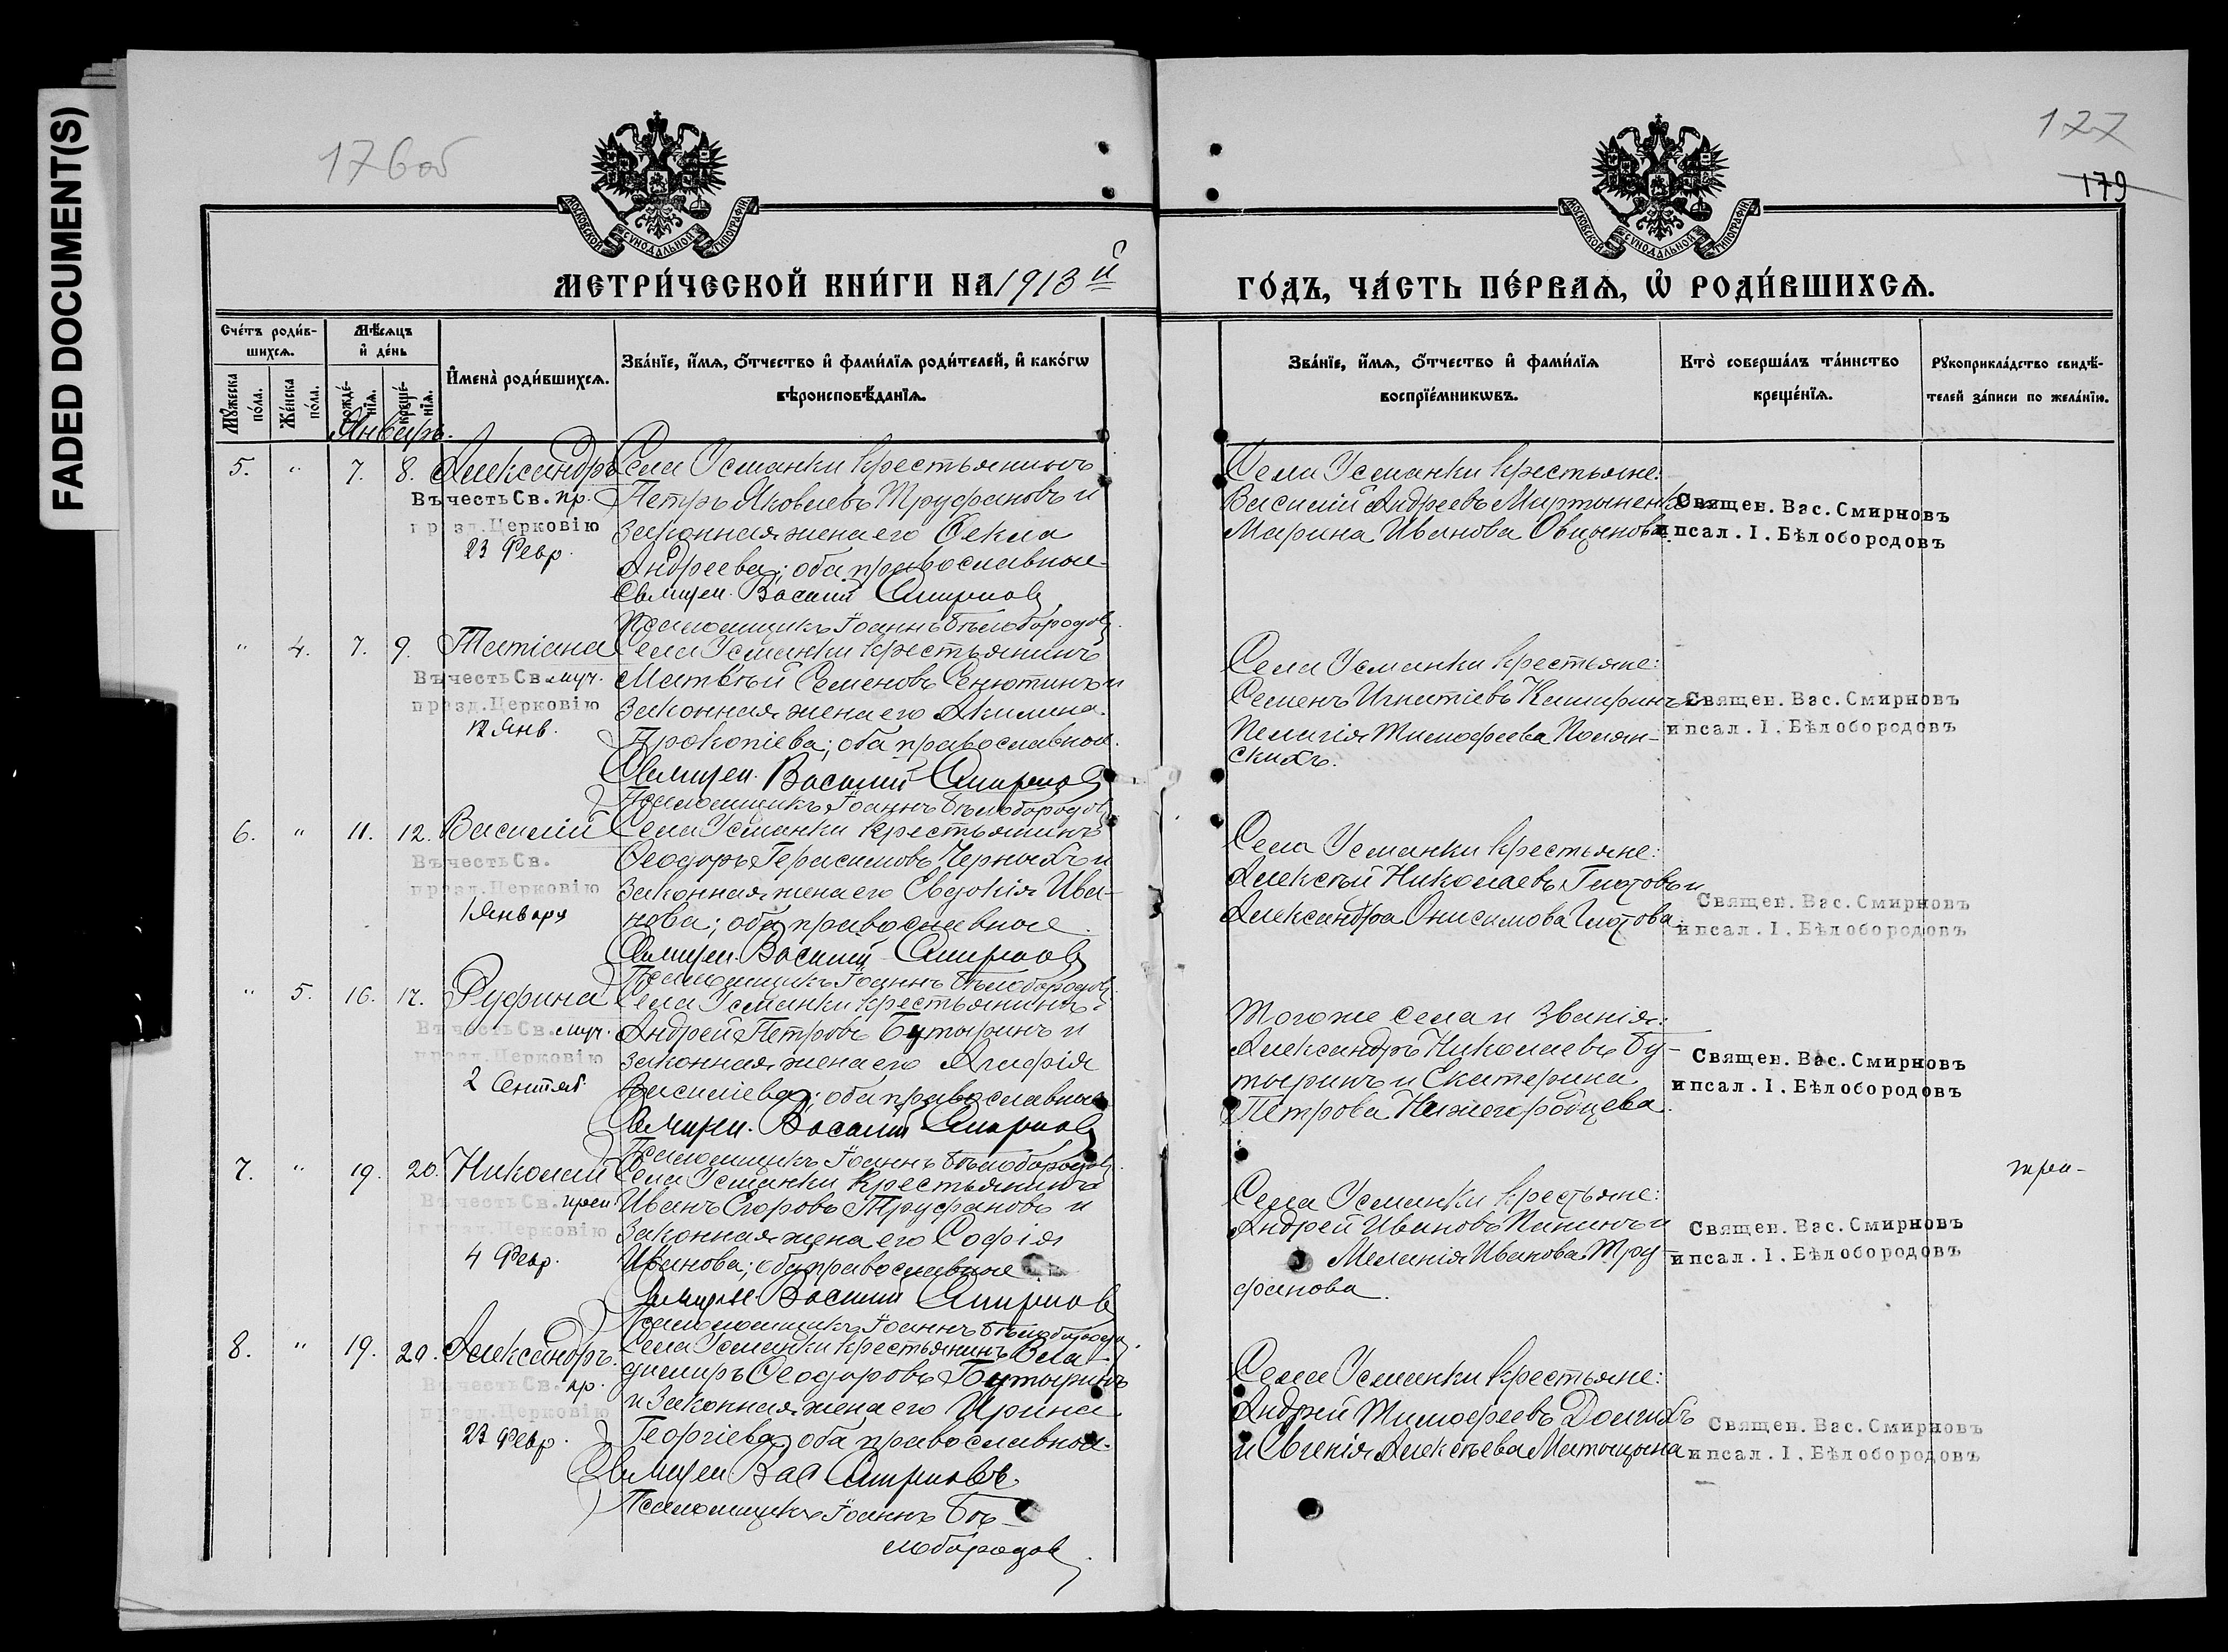 FADED DOCUMENT(S)
176об
127
179
МОСКОВСКОЙ СУНОДАЛЬНОЙ ТИПОГРАФИИ
МОСКОВСКОЙ СУНОДАЛЬНОЙ ТИПОГРАФИИ
МЕТРИ́ЧЕСКОЙ КНИ́ГИ НА 1913 й
ГО́ДЪ, ЧА́СТЬ ПЕ́РВАѦ, Ѡ҆ РОДИ́ВШИХСѦ.
Сче́тъ роди́в-
шихсѧ.
Мѣ́сѧцъ
и҆ де́нь
Мꙋ́жеска
по́ла.
Же́нска
по́ла.
рожде́-
нїѧ.
креще́-
нїѧ.
И҆мена̀ роди́вшихсѧ.
Зва́нїе, и҆́мѧ, ѻ҆́тчество и҆ фами́лїѧ роди́телей, и҆ како́гѡ
вѣроисповѣ́данїѧ.
Зва́нїе, и҆́мѧ, ѻ҆́тчество и҆ фами́лїѧ
воспрїе́мникѡвъ.
Кто̀ соверша́лъ та́инство
креще́нїѧ.
Рꙋкоприкла́дство свидѣ́-
телей за́писи по жела́нїю.
Январь.
5. " 7. 8. Александръ
Въ честь Св. пр.
празд. Церковію
23 Февр.
Села Усманки крестьянинъ
Петръ Яковлевъ Труфановъ и
законная жена его Ѳекла
Андреева; оба православные.
Священ. Василій Смирновъ
Псаломщикъ Іоаннъ Бѣлобородовъ.
Села Усманки крестьяне:
Василій Андреевъ Мартыненко и
Марина Иванова Овцынова.
Священ. Вас. Смирновъ
и псал. І. Бѣлобородовъ
" 4. 7. 9. Татіана
Въ честь Св. муч.
празд. Церковію
12 Янв.
Села Усманки крестьянинъ
Матвѣй Семеновъ Сенютинъ и
законная жена его Акилина
Прокопіева; оба православные.
Священ. Василій Смирновъ
Псаломщикъ Іоаннъ Бѣлобородовъ
Села Усманки крестьяне:
Семенъ Игнатіевъ Каширинъ и
Пелагія Тимофеева Полян-
скихъ.
Священ. Вас. Смирновъ
и псал. І. Бѣлобородовъ
6. " 11. 12. Василій
Въ честь Св.
празд. Церковію
1 Января
Села Усманки крестьянинъ
Ѳеодоръ Герасимовъ Черныхъ и
законная жена его Евдокія Ива-
нова; оба православные.
Священ. Василій Смирновъ
Псаломщикъ Іоаннъ Бѣлобородовъ.
Села Усманки крестьяне:
Алексѣй Николаевъ Глотовъ и
Александра Онисимова Глотова.
Священ. Вас. Смирновъ
и псал. І. Бѣлобородовъ
" 5. 16. 17. Руфина
Въ честь Св. муч.
празд. Церковію
2 Сентяб.
Села Усманки крестьянинъ
Андрей Петровъ Бутыринъ и
законная жена его Агафія
Василіева; оба православные
Священ. Василій Смирновъ
Псаломщикъ Іоаннъ Бѣлобородовъ.
Того же села и званія:
Александръ Николаевъ Бу-
тыринъ и Екатерина
Петрова Нижегородцева.
Священ. Вас. Смирновъ
и псал. І. Бѣлобородовъ
7. " 19. 20. Николай
Въ честь Св. преп.
празд. Церковію
4 Февр.
Села Усманки крестьянинъ
Иванъ Егоровъ Труфановъ и
законная жена его Софія
Иванова; оба православные
Священ. Василій Смирновъ
Псаломщикъ Іоаннъ Бѣлобородовъ.
Села Усманки крестьяне:
Андрей Ивановъ Папинъ и
Меланія Иванова Тру-
фанова.
Священ. Вас. Смирновъ
и псал. І. Бѣлобородовъ
8. " 19. 20. Александръ.
Въ честь Св. пр.
празд. Церковію
23 Февр.
Села Усманки крестьянинъ Вла-
димиръ Ѳеодоровъ Бутыринъ
и законная жена его Ирина
Георгіева, оба православные.
Священ Вас Смирновъ.
Псаломщикъ Іоаннъ Бѣ-
лобородовъ.
Села Усманки крестьяне:
Андрей Тимофеевъ Долгихъ
и Евгенія Алексѣева Матыцына
Священ. Вас. Смирновъ
и псал. І. Бѣлобородовъ